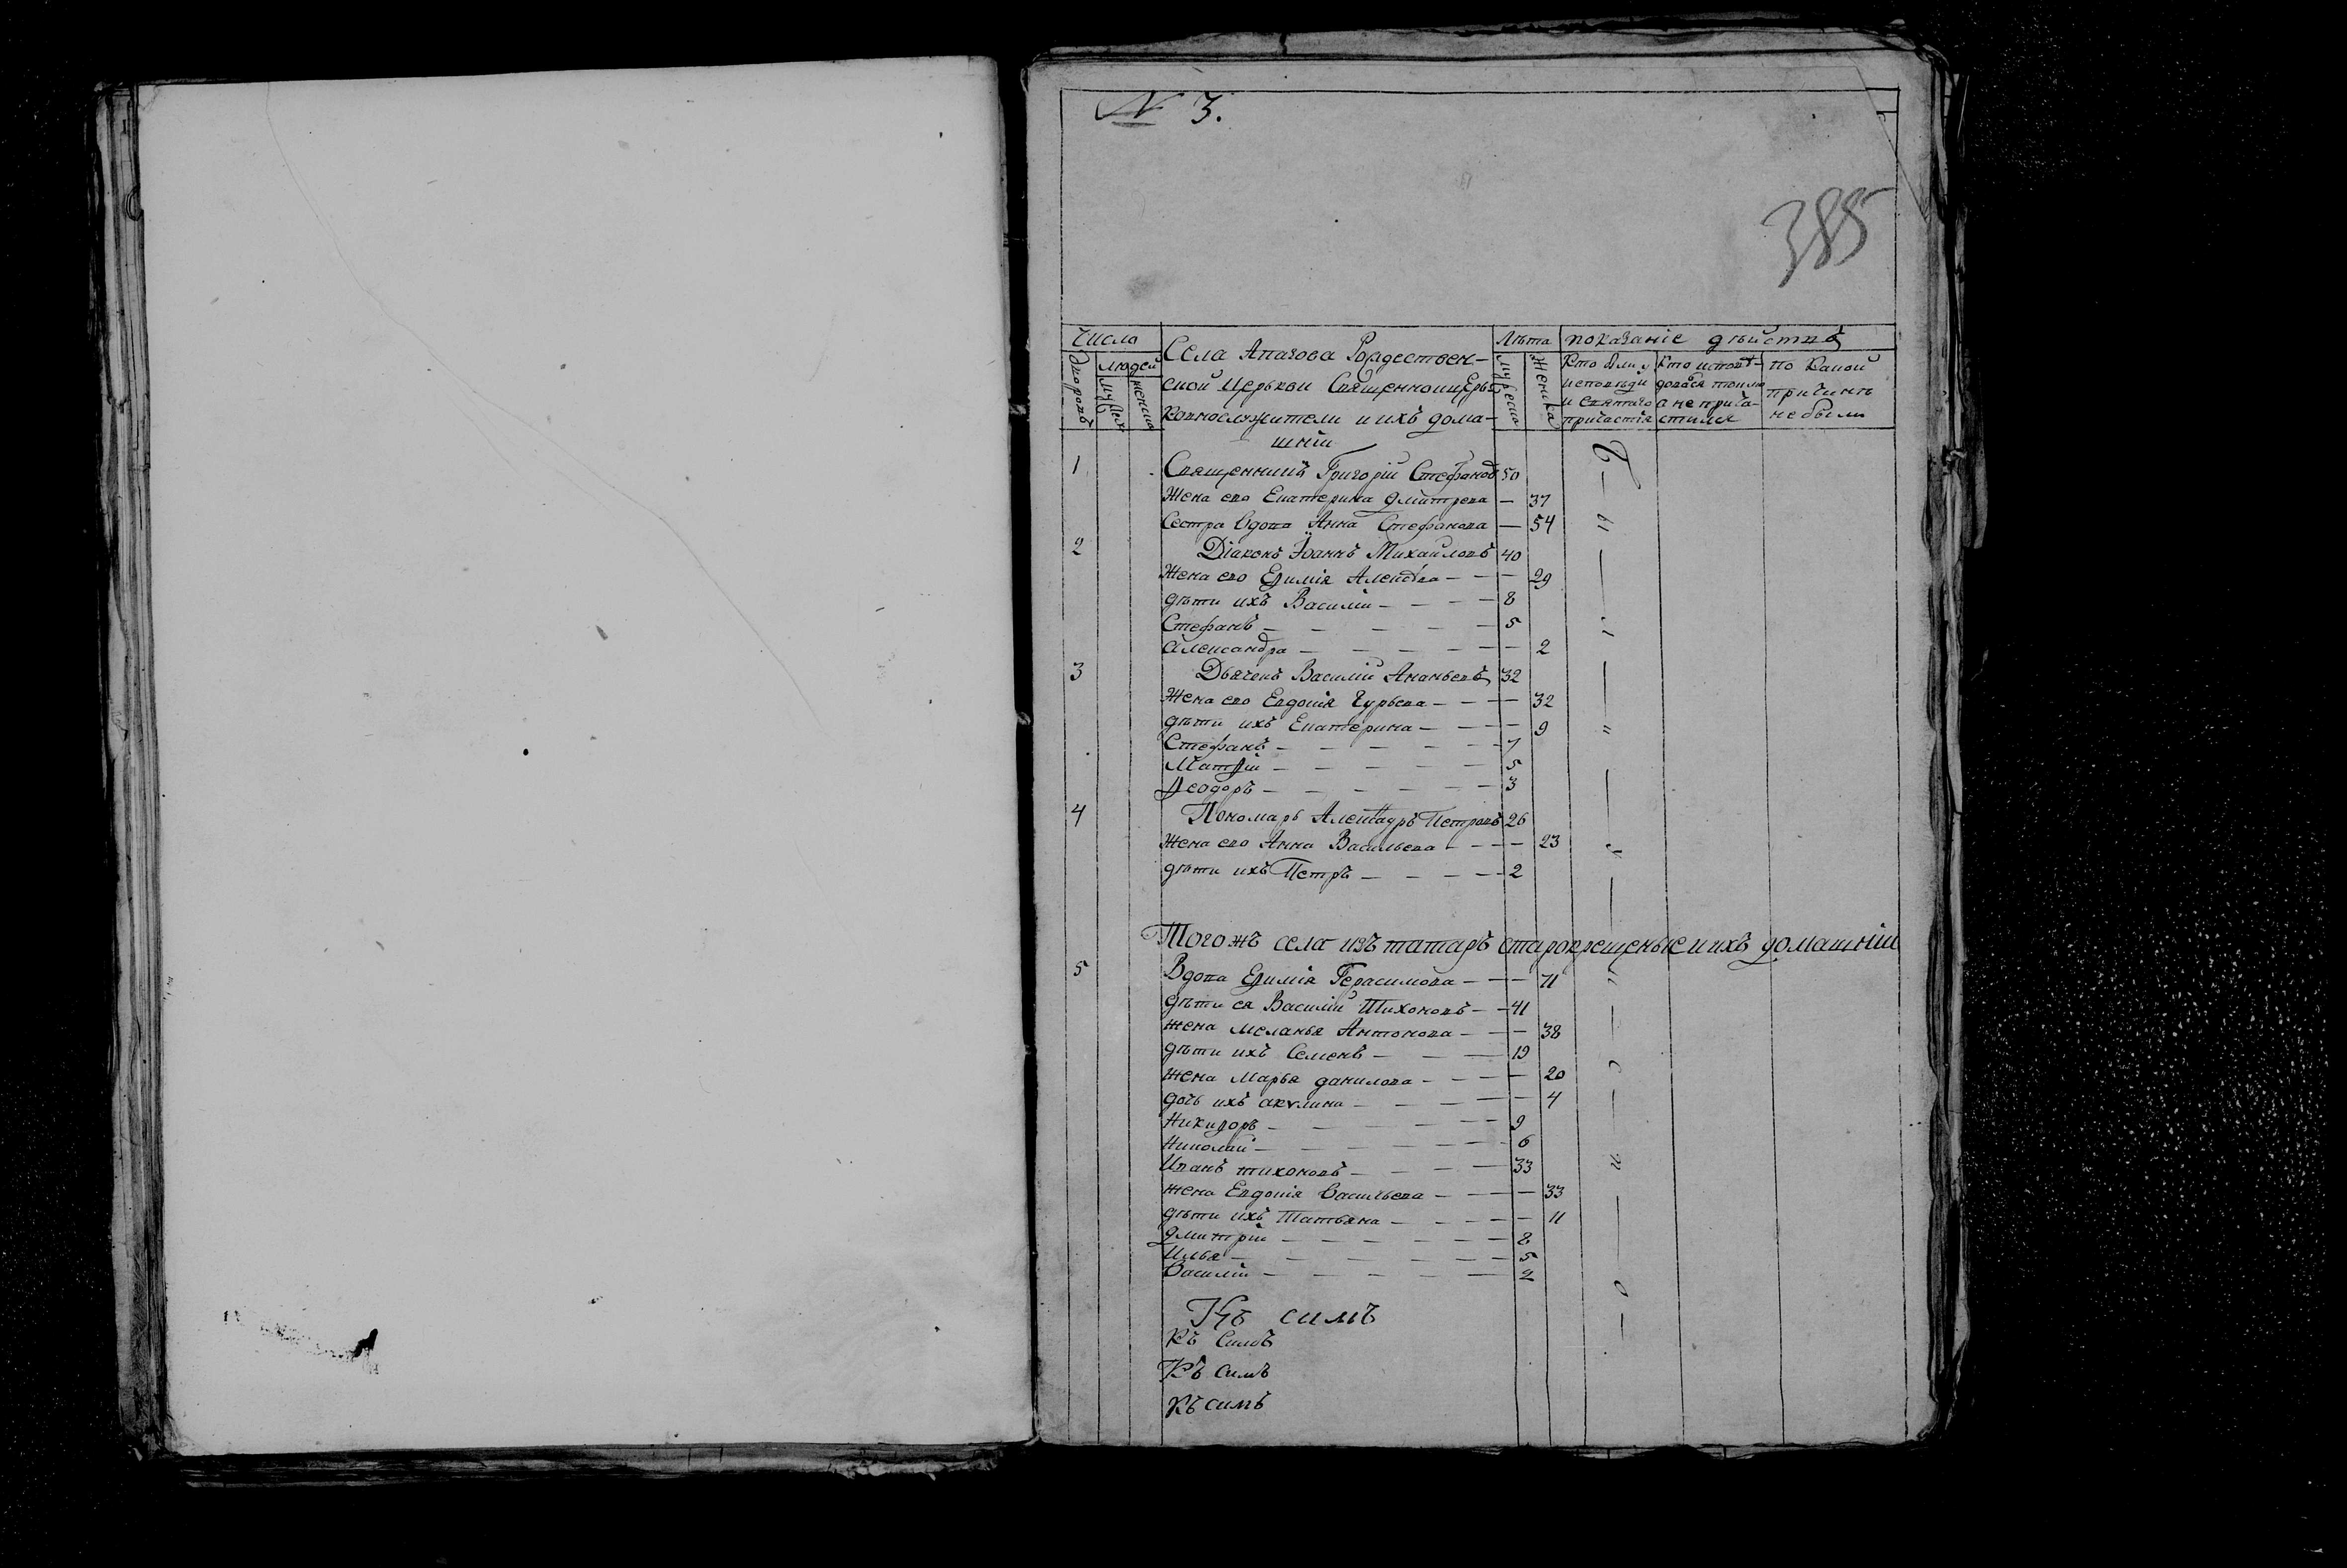 N 3.
385
Число
Лѣта
показаніе дѣйствъ
Дворовъ
людей
мужеск
женска
Села Апазова Рождествен-
ской Церькви Священноицерь
ковнослужители и ихъ дома-
шніи
мужеска
женска
Кто были у
исповѣди
и святаго
причастія
Кто исповѣ-
довался токмо
а не прича-
стился
по какой
причинѣ
не были
1 Священникъ Григорій Стефановъ 50
Жена ево Екатерина Дмитрева — 37
Сестра вдова Анна Стефанова — 54
2 Діаконъ Іоаннъ Михайловъ 40
Жена ево Еѵфимія — — — 29
дѣти ихъ Василій — — — — 8
Стефанъ — — — — — 5
Александра — — — — — — 2
3 Дьячекъ Василій Ананьевъ 32
Жена ево Евдокія Гурьева — — — 32
дѣти ихъ Екатерина — — — — 9
Стефанъ — — — — — 7
Матѳій — — — — — 5
Ѳеодоръ — — — — — 3
4 Пономарь Петровъ 26
Жена ево Анна Васильева — — — — 23
дѣти ихъ Петръ — — — — 2
Тогожъ села изъ татаръ старокрещеные и ихъ домашніи
5 Вдова Еѳимія Герасимова — — — 71
дѣти ея Василій Тихоновъ — — 41
жена Меланья Антонова — — — 38
дѣти ихъ Семенъ — — — 19
жена Марья Данилова — — — — 20
дочь ихъ акѵлина — — — — — 4
Никиѳоръ — — — — — 9
Николай — — — — — 6
Иванъ тихоновъ — — — — 33
жена Евдокія Васильева — — — — 33
дѣти ихъ Татьяна — — — — — 11
Дмитрій — — — — — — 8
Илья — — — — — — 5
Василій — — — — — 2
Къ симъ
Къ Симъ
Къ симъ
Къ симъ